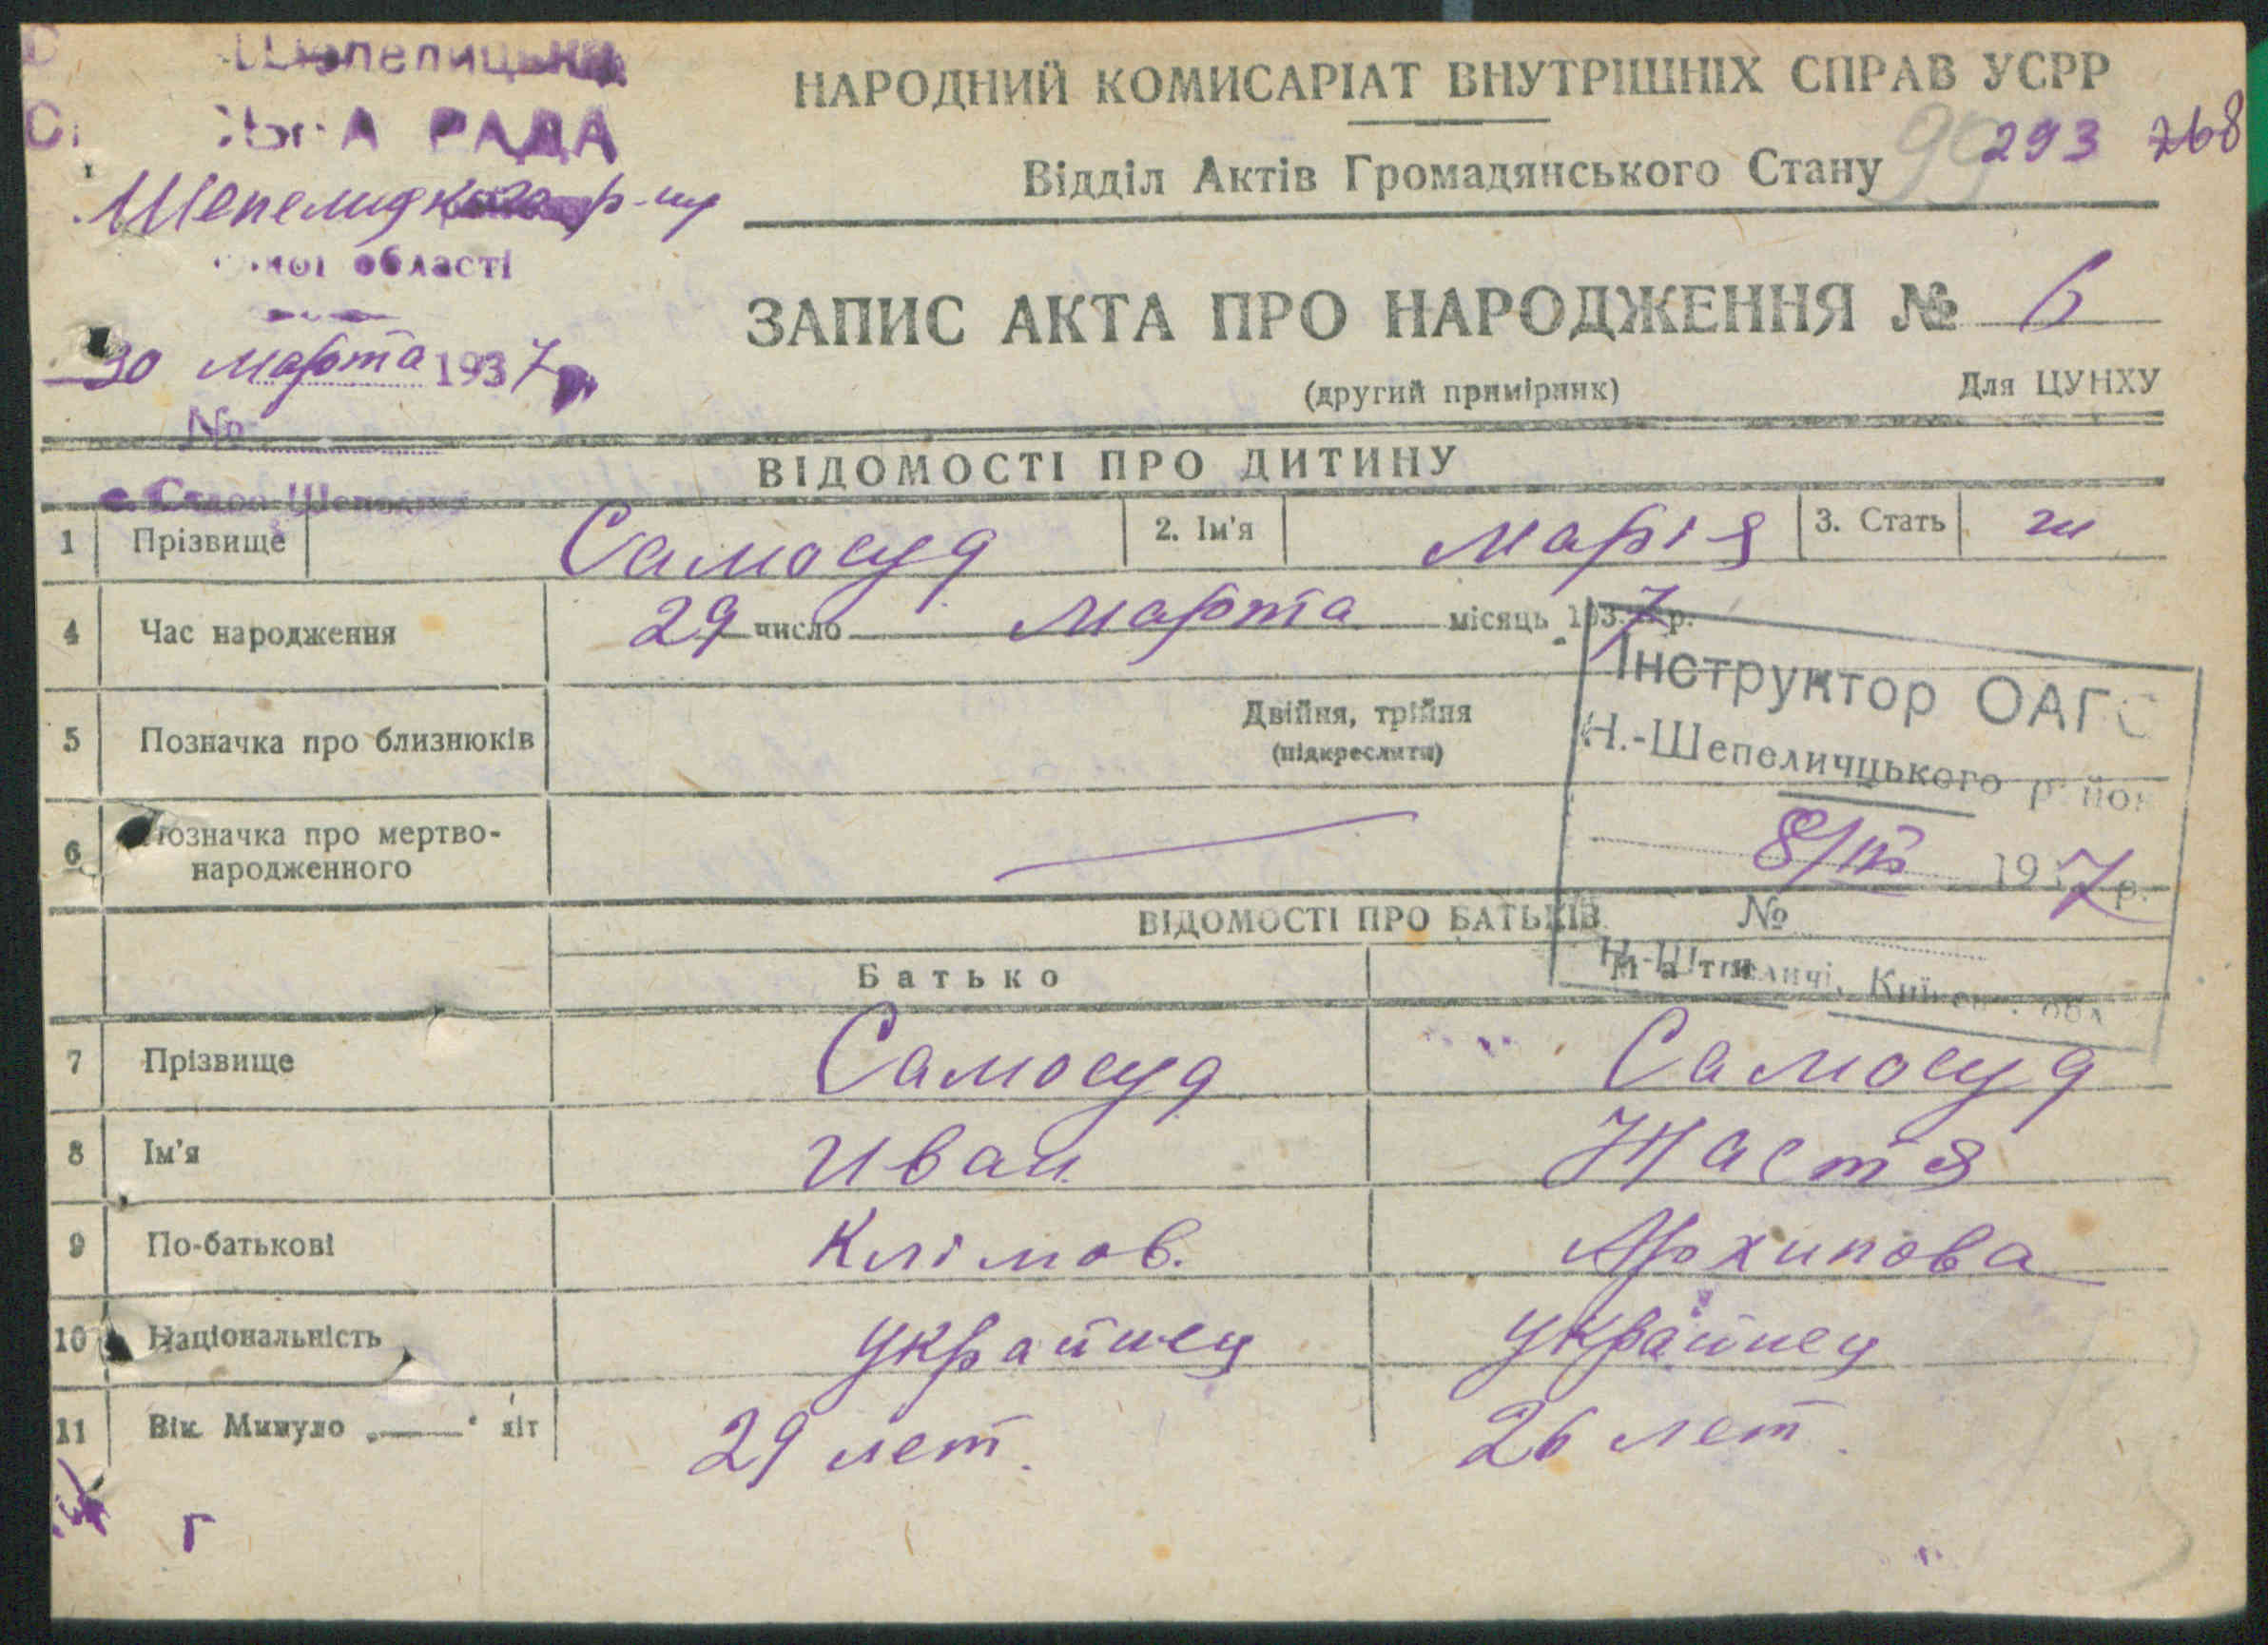 Шепелицька
РАДА
Шепелицкого р-ну
області
30 марта 1937 р.
№
с. Старо-Шепеличі
НАРОДНИЙ КОМИСАРІАТ ВНУТРІШНІХ СПРАВ УСРР
Відділ Актів Громадянського Стану
99 293 268
ЗАПИС АКТА ПРО НАРОДЖЕННЯ № 6
(другий примірник) Для ЦУНХУ
ВІДОМОСТІ ПРО ДИТИНУ
1 Прізвище Самосуд 2. Ім'я Марія 3. Стать ж
4 Час народження 29 число марта місяць 1937 р.
5 Позначка про близнюків Двійня, трійня
(підкреслити)
Інструктор ОАГС
Н.-Шепеличцького район
8/IV 1937 р.
№
Н-Шепеличі, Київськ. обл
6 Позначка про мертво-
народженного
ВІДОМОСТІ ПРО БАТЬКІВ
Батько Мати
7 Прізвище Самосуд Самосуд
8 Ім'я Иван Настя
9 По-батькові Клімов. Архипова
10 Національність Украйнец Украйнец
11 Вік. Минуло „——“ літ 29 лет. 26 лет.
г